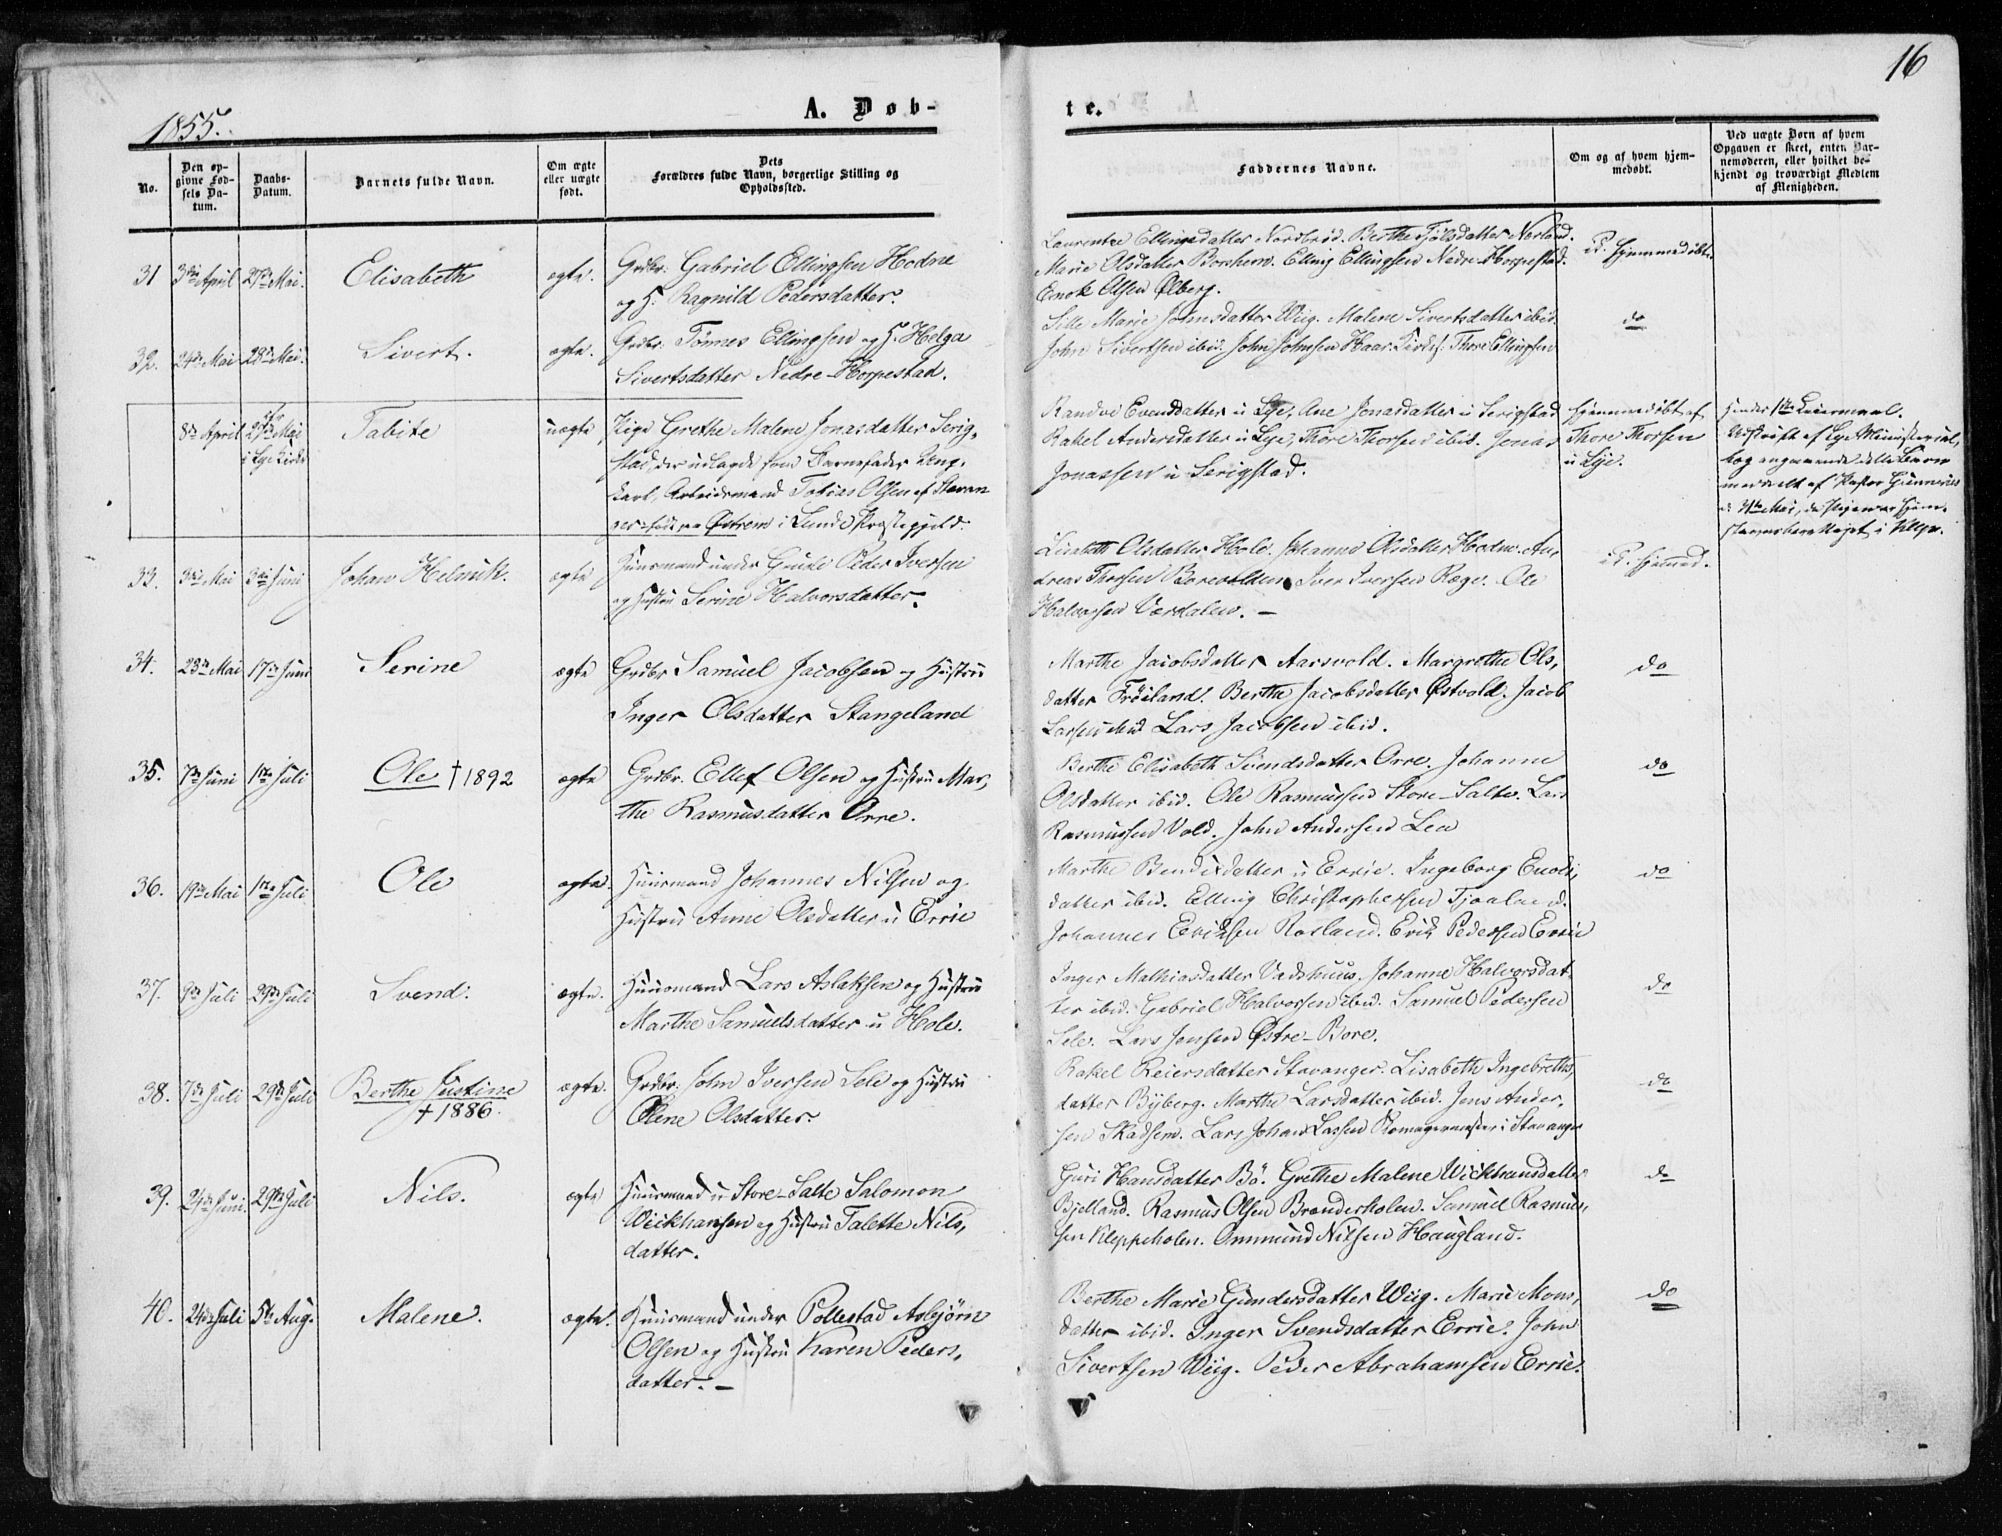 16
1855.
A. Døb-
te.
No.
Den op-
givne Fød-
sels Da-
tum.
Daabs-
Datum.
Barnets fulde Navn.
Om ægte
eller uægte
født.
Dets
Forældres fulde Navn, borgerlige Stilling og
Opholdssted.
Faddernes Navne.
Om og af hvem hjem-
medøbt.
Ved uægte Børn af hvem
Opgaven er skeet, enten Bar-
nemoderen, eller hvilket be-
kjendt og troværdigt Medlem
af Menigheden.
31 3die April 27de Mai. Elisabeth ægte. Grdbr. Gabriel Ellingsen Hodne
og H. Ragnild Pedersdatter.
Laurentze Ellingsdatter Nordbrød. Berthe Tjølsdatter Nærland.
Marie Olsdatter Borshem. Elling Ellingsen Nedre-Horpestad.
Enok Olsen Ølberg.
i. hjemmedøbt
32. 24de Mai 28de Mai. Sivert. ægte. Grdbr. Tønnes Ellingsen og H. Helga
Sivertsdatter Nedre-Horpestad.
Sille Marie Johnsdatter Wiig. Malene Sivertsdatter ibid.
John Sivertsen ibid. John Johnsen Haar. Thore Ellingsen
do
8de April 27de Mai
i Lye Kirke
Tabite uægte Pige Grethe Malene Jonasdatter Serig-
stad, der udlagde som Barnefader Ung-
karl, Arbeidsmand Tobias Olsen af Stavan
ger født paa Østrem i Lunde Præstegjeld.
Randvi Evendsdatter u Lye, Ane Jonasdatter u Serigstad
Rakel Andersdatter u Lye, Thore Thorsen ibid. Jonas
Jonassen u Serigstad.
hjemmedøbt af
Thore Thorsen
u Lye.
Hendes 1ste Leiermaal.
Udskrift af Lye Ministerial-
bog angaaende dette Barn
meddelt af Pastor
Mai,
33. 3die Mai 3die Juni Johan Helmik. ægte Huusmand under Grude Peder Iversen
og Hustru Serine Halvorsdatter.
Lisabeth Olsdatter Hole. Johanne Olsdatter Hodne. An-
dreas Thorsen Borevolden. Iver Iversen Rege. Ole
Halvorsen Værdalen. –
i. hjemmed.
34. 23de Mai 17de Juni Serine ægte Grdbr Samuel Jacobsen og Hustru
Inger Olsdatter Stangeland
Marthe Jacobsdatter Aarsvold. Margrethe Ols-
datter Frøiland. Berthe Jacobsdatter Østvold. Jacob
Larsen ibid Lars Jacobsen ibid.
do
35. 7de Juni 1ste Juli Ole † 1892 ægte Grdbr. Ellef Olsen og Hustru Mar-
the Rasmusdatter Orre.
Berthe Elisabeth Svendsdatter Orre. Johanne
Olsdatter ibid. Ole Rasmussen Store-Salte. Lars
Rasmussen Vold. John Andersen Lea
do
36. 19de Mai 1ste Juli Ole ægte. Huusmand Johannes Nilsen og
Hustru Anne Olsdatter u Errie
Marthe Bendixdatter u Errie. Ingeborg Enoks-
datter ibid. Elling Christophersen Tjaaland.
Johannes Eriksen Rosland. Erik Pedersen Errie
do
37. 9de Juli 29de Juli Svend. ægte. Huusmand Lars Aslaksen og Hustru
Marthe Samuelsdatter u Hole.
Inger Mathiasdatter Vadshuus. Johanne Halvorsdat-
ter ibid. Gabriel Halvorsen ibid. Samuel Pedersen
Sele. Lars Jensen Østre-Bore.
do
38. 7de Juli 29de Juli Berthe Justine
† 1886. ægte. Grdbr. John Iversen Sele og Hustru
Olene Olsdatter.
Rakel Reiersdatter Stavanger. Lisabeth Ingebreths-
datter Byberg. Marthe Larsdatter ibid. Jens Ander-
sen Skadsem. Lars Johan Larsen Skomagermester i Stavanger
do
39. 24de Juni. 29de Juli Nils. ægte Huusmand u Store-Salte Salomon
Wickhansen og Hustru Talette Nils-
datter.
Guri Hansdatter Bø. Grethe Malene Wickhansdatter
Bjelland. Rasmus Olsen Brænderholen. Samuel Rasmus-
sen Kleppeholen. Ommund Nilsen Haugland.
do
40. 24de Juli 5te Aug. Malene. ægte. Huusmand under Pollestad Asbjørn
Olsen og Hustru Karen Peders-
datter. –
Berthe Marie Gundersdatter Wiig. Marie Mons-
datter ibid. Inger Svendsdatter Errie. John
Sivertsen Wiig. Peder Abrahamsen Errie.
do